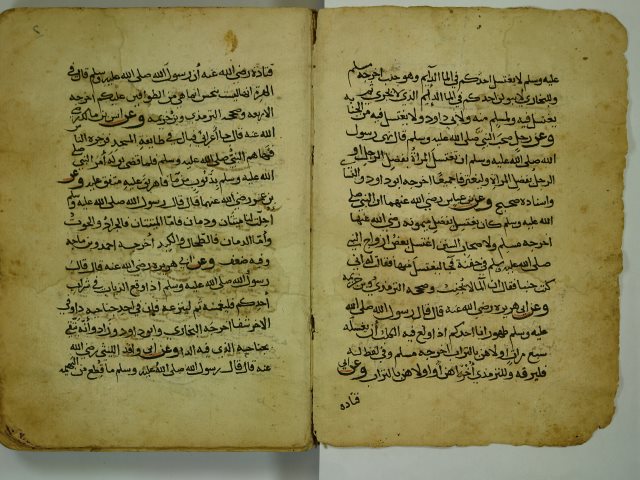 عليه وسلم لا يغتسل احدكم في الما الدايم وهو جنب اخرجه مسلم
وللبخاري لا يبولن احدكم في الما الدايم الذي لا يجري ثم
يغتسل فيه ولمسلم منه ولابي داود ولا يغتسل فيه من الجنابه
وعن رجل صحب النبي صلى الله عليه وسلم قال نهى رسول
الله صلى الله عليه وسلم ان تغتسل المراة بفضل الرجل او
الرجل بفضل المراة وليغترفا جميعا اخرجه ابو داود والنسائي
واسناده صحيح وعن ابن عباس رضي الله عنهما ان النبي صلى
الله عليه وسلم كان يغتسل بفضل ميمونه رضي الله عنها
اخرجه مسلم ولاصحاب السنن اغتسل بعض ازواج النبي
صلى الله عليه وسلم في جفنة فجا ليغتسل منها فقالت له اني
كنت جنبا فقال ان الما لا يجنب وصححه الترمذي وابن خزيمه
وعن ابي هريره رضي الله عنه قال قال رسول الله صلى الله
عليه وسلم طهور انا احدكم اذا ولغ فيه الكلب ان يغسله
سبع مرات اولاهن بالتراب اخرجه مسلم وفي لفظ له
فليرقه وللترمذي اخراهن او اولاهن بالتراب وعن ابي
قتاده
قتاده رضي الله عنه ان رسول الله صلى الله عليه وسلم قال في
الهرة انها ليست بنجس انما هي من الطوافين عليكم اخرجه
الاربعه وصححه الترمذي وابن خزيمه وعن انس بن مالك رضي
الله عنه قال جا اعرابي فبال في طايفة المسجد فزجره الناس
فنهاهم النبي صلى الله عليه وسلم فلما قضى بوله امر النبي صلى
الله عليه وسلم بذنوب من ما فاهريق عليه متفق عليه وعن
بن عمر رضي الله عنهما قال قال رسول الله صلى الله عليه وسلم
احلت لنا ميتتان ودمان فاما الميتتان فالجراد والحوت
واما الدمان فالطحال والكبد اخرجه احمد وبن ماجه
وفيه ضعف وعن ابي هريره رضي الله عنه قال قال
رسول الله صلى الله عليه وسلم اذا وقع الذباب في شراب
احدكم فليغمسه ثم لينزعه فان في احد جناحيه دا وفي
الاخر شفا اخرجه البخاري وابو داود وزاد وانه يتقي
بجناحيه الذي فيه الدا وعن ابي واقد الليثي رضي الله
عنه قال قال رسول الله صلى الله عليه وسلم ما قطع من البهيمه